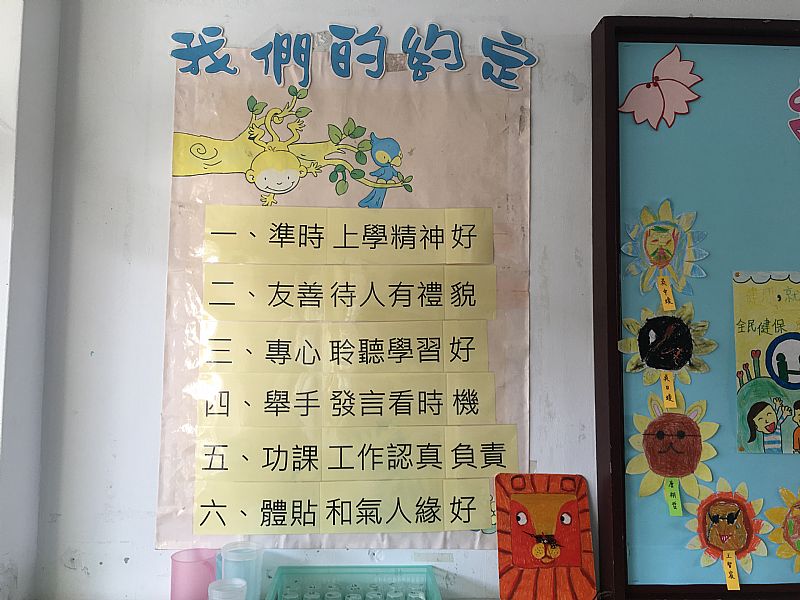 我們的約定
一、準時上學精神好
二、友善待人有禮貌
三、專心聆聽學習好
四、舉手發言看時機
五、功課工作認真負責
六、體貼和氣人緣好
全民健保